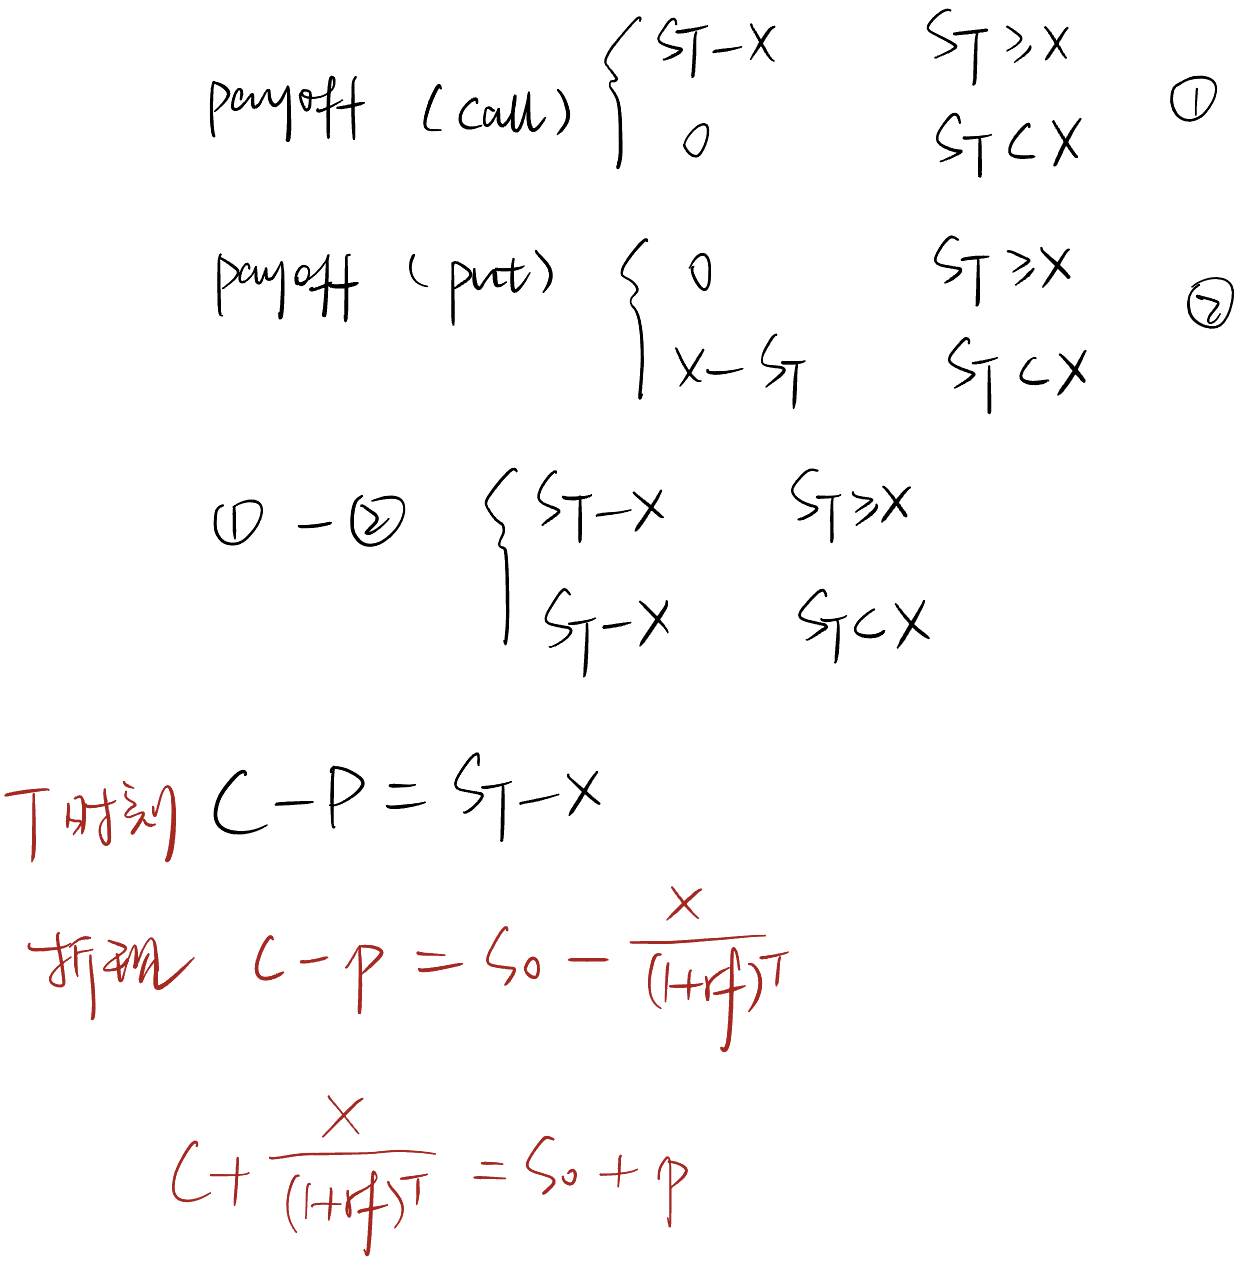 payoff (call) { ST-X ST≥X ①
0 ST<X
payoff (put) { 0 ST≥X ②
X-ST ST<X
①-② { ST-X ST≥X
ST-X ST<X
T时刻 C-P=ST-X
折现 C-P=S0-X/(1+rf)^T
C+X/(1+rf)^T=S0+P